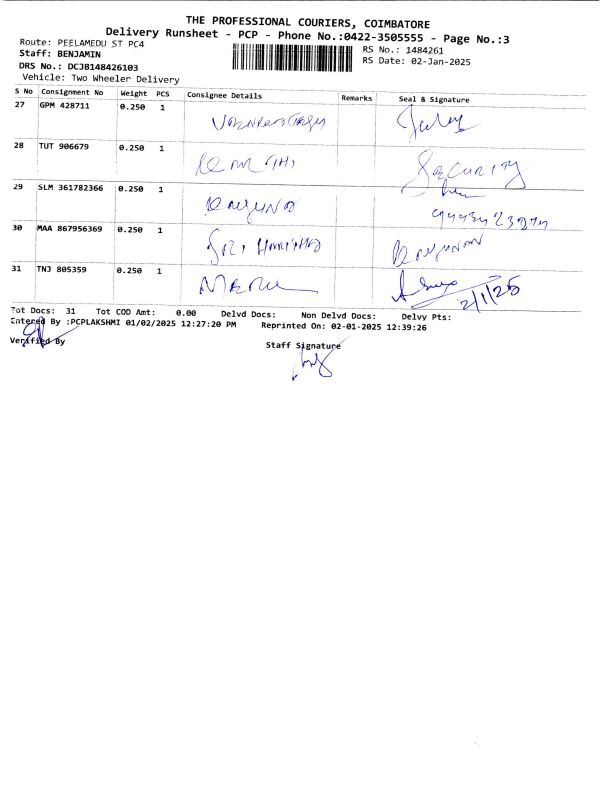 THE PROFESSIONAL COURIERS, COIMBATORE
Delivery Runsheet - PCP - Phone No.:0422-3505555 - Page No.:3
Route: PEELAMEDU ST PC4
RS No.: 1484261
Staff: BENJAMIN
RS Date: 02-Jan-2025
DRS No.: DCJB148426103
Vehicle: Two Wheeler Delivery
S No Consignment No Weight PCS Consignee Details Remarks Seal & Signature
27 GPM 428711 0.250 1
28 TUT 906679 0.250 1 SECURITY
29 SLM 361782366 0.250 1
30 MAA 867956369 0.250 1 SRI
31 TNJ 805359 0.250 1 2/1/25
Tot Docs: 31 Tot COD Amt: 0.00 Delvd Docs: Non Delvd Docs: Delvy Pts:
Entered By :PCPLAKSHMI 01/02/2025 12:27:20 PM Reprinted On: 02-01-2025 12:39:26
Verified By Staff Signature